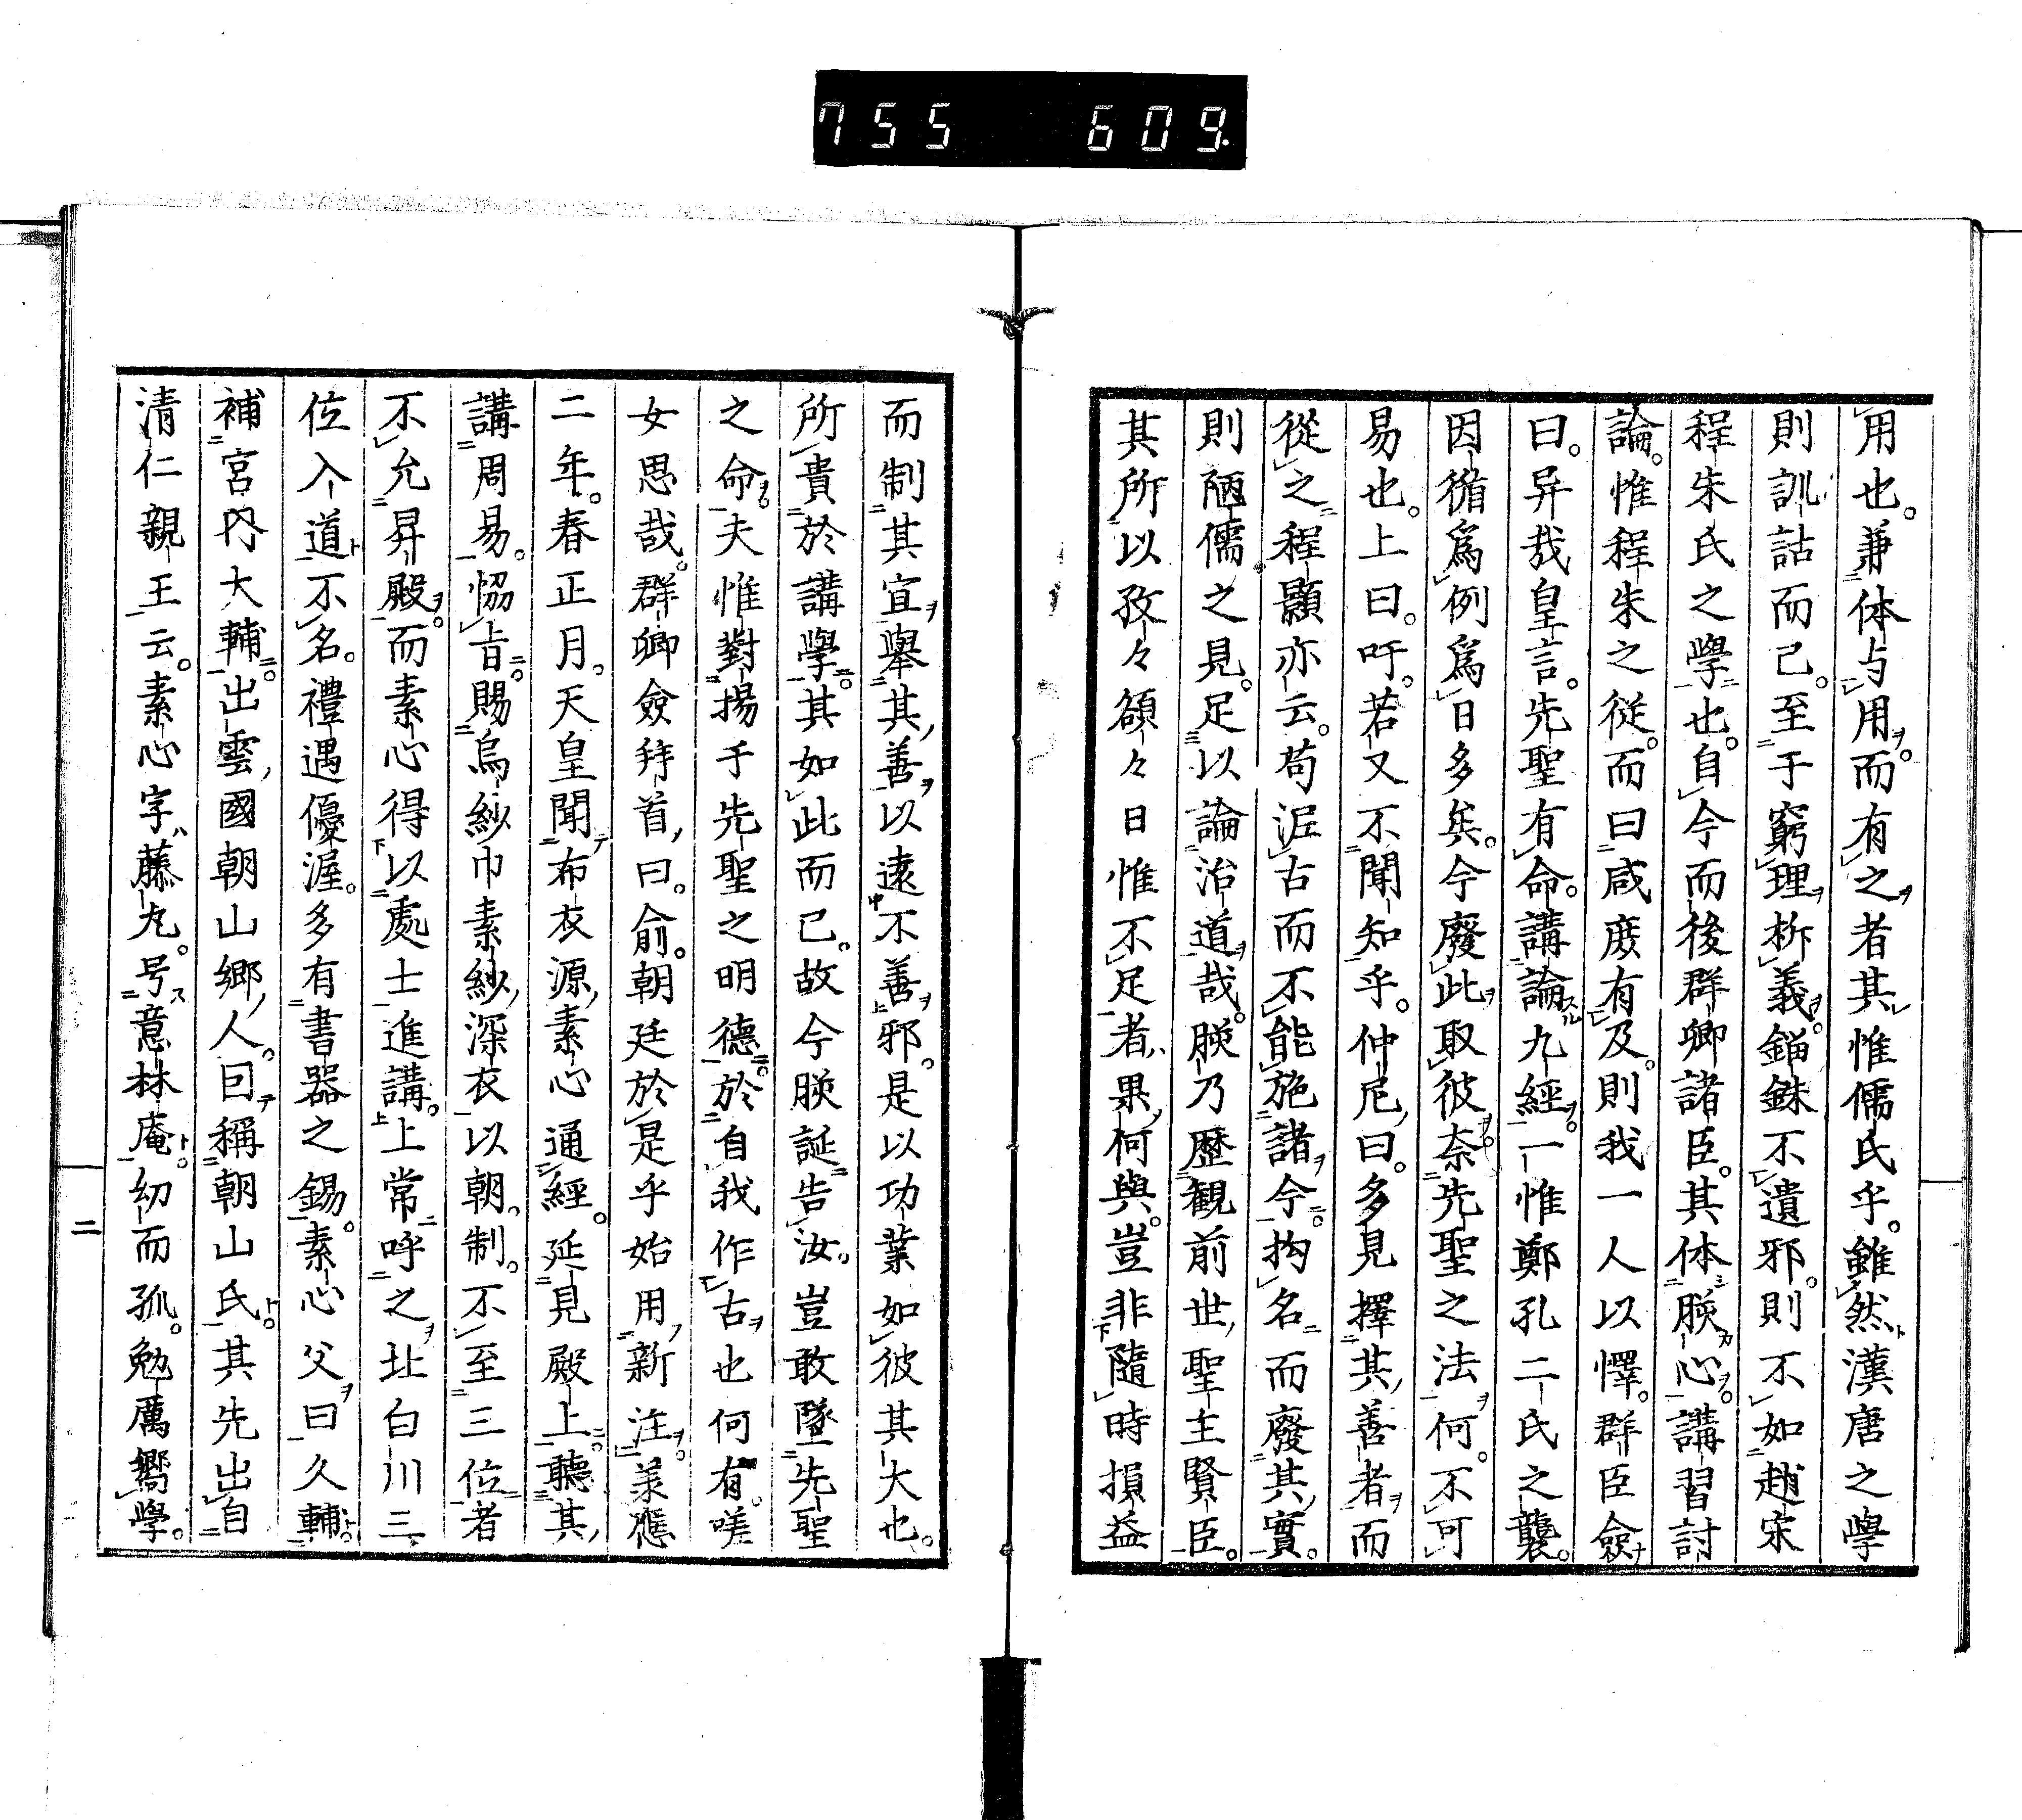 755 609.
用也。兼体与用而有之者其惟儒氏乎。雖然漢唐之學
則訓詁而已。至于窮理析義。錙銖不遺邪。則不如趙宋
程朱氏之學也。自今而後群卿諸臣。其体朕心。講習討
論。惟程朱之從。而曰咸庶有及。則我一人以懌。群臣僉
曰。异哉皇言。先聖有命。講論九經。一惟鄭孔二氏之襲。
因循爲例爲日多矣。今廢此取彼。奈先聖之法何。不可
易也。上曰。吁。若又不聞知乎。仲尼曰。多見擇其善者而
從之。程顥亦云。苟泥古而不能施諸今。拘名而廢其實。
則陋儒之見。足以論治道哉。朕乃歷観前世聖主賢臣。
其所以孜々頟々日惟不足者果何與。豈非隨時損益
而制其宜舉其善以遠不善邪。是以功業如彼其大也。
所貴於講學。其如此而已。故今朕誕告汝。豈敢墜先聖
之命。夫惟對揚于先聖之明德。於自我作古也何有。嗟
女思哉。群卿僉拜首曰。俞。朝廷於是乎始用新注。羕應
二年。春正月。天皇聞布衣源素心通經。延見殿上。聽其
講周易。恊旨。賜烏紗巾素紗深衣以朝。制。不至三位者
不允昇殿。而素心得以處士進講。上常呼之北白川三
位入道不名。禮遇優渥。多有書器之錫。素心父曰久輔。
補宮内大輔。出雲國朝山郷人。曰稱朝山氏。其先出自
清仁親王云。素心字藤丸。号意林庵。幼而孤。勉厲嚮學。
二